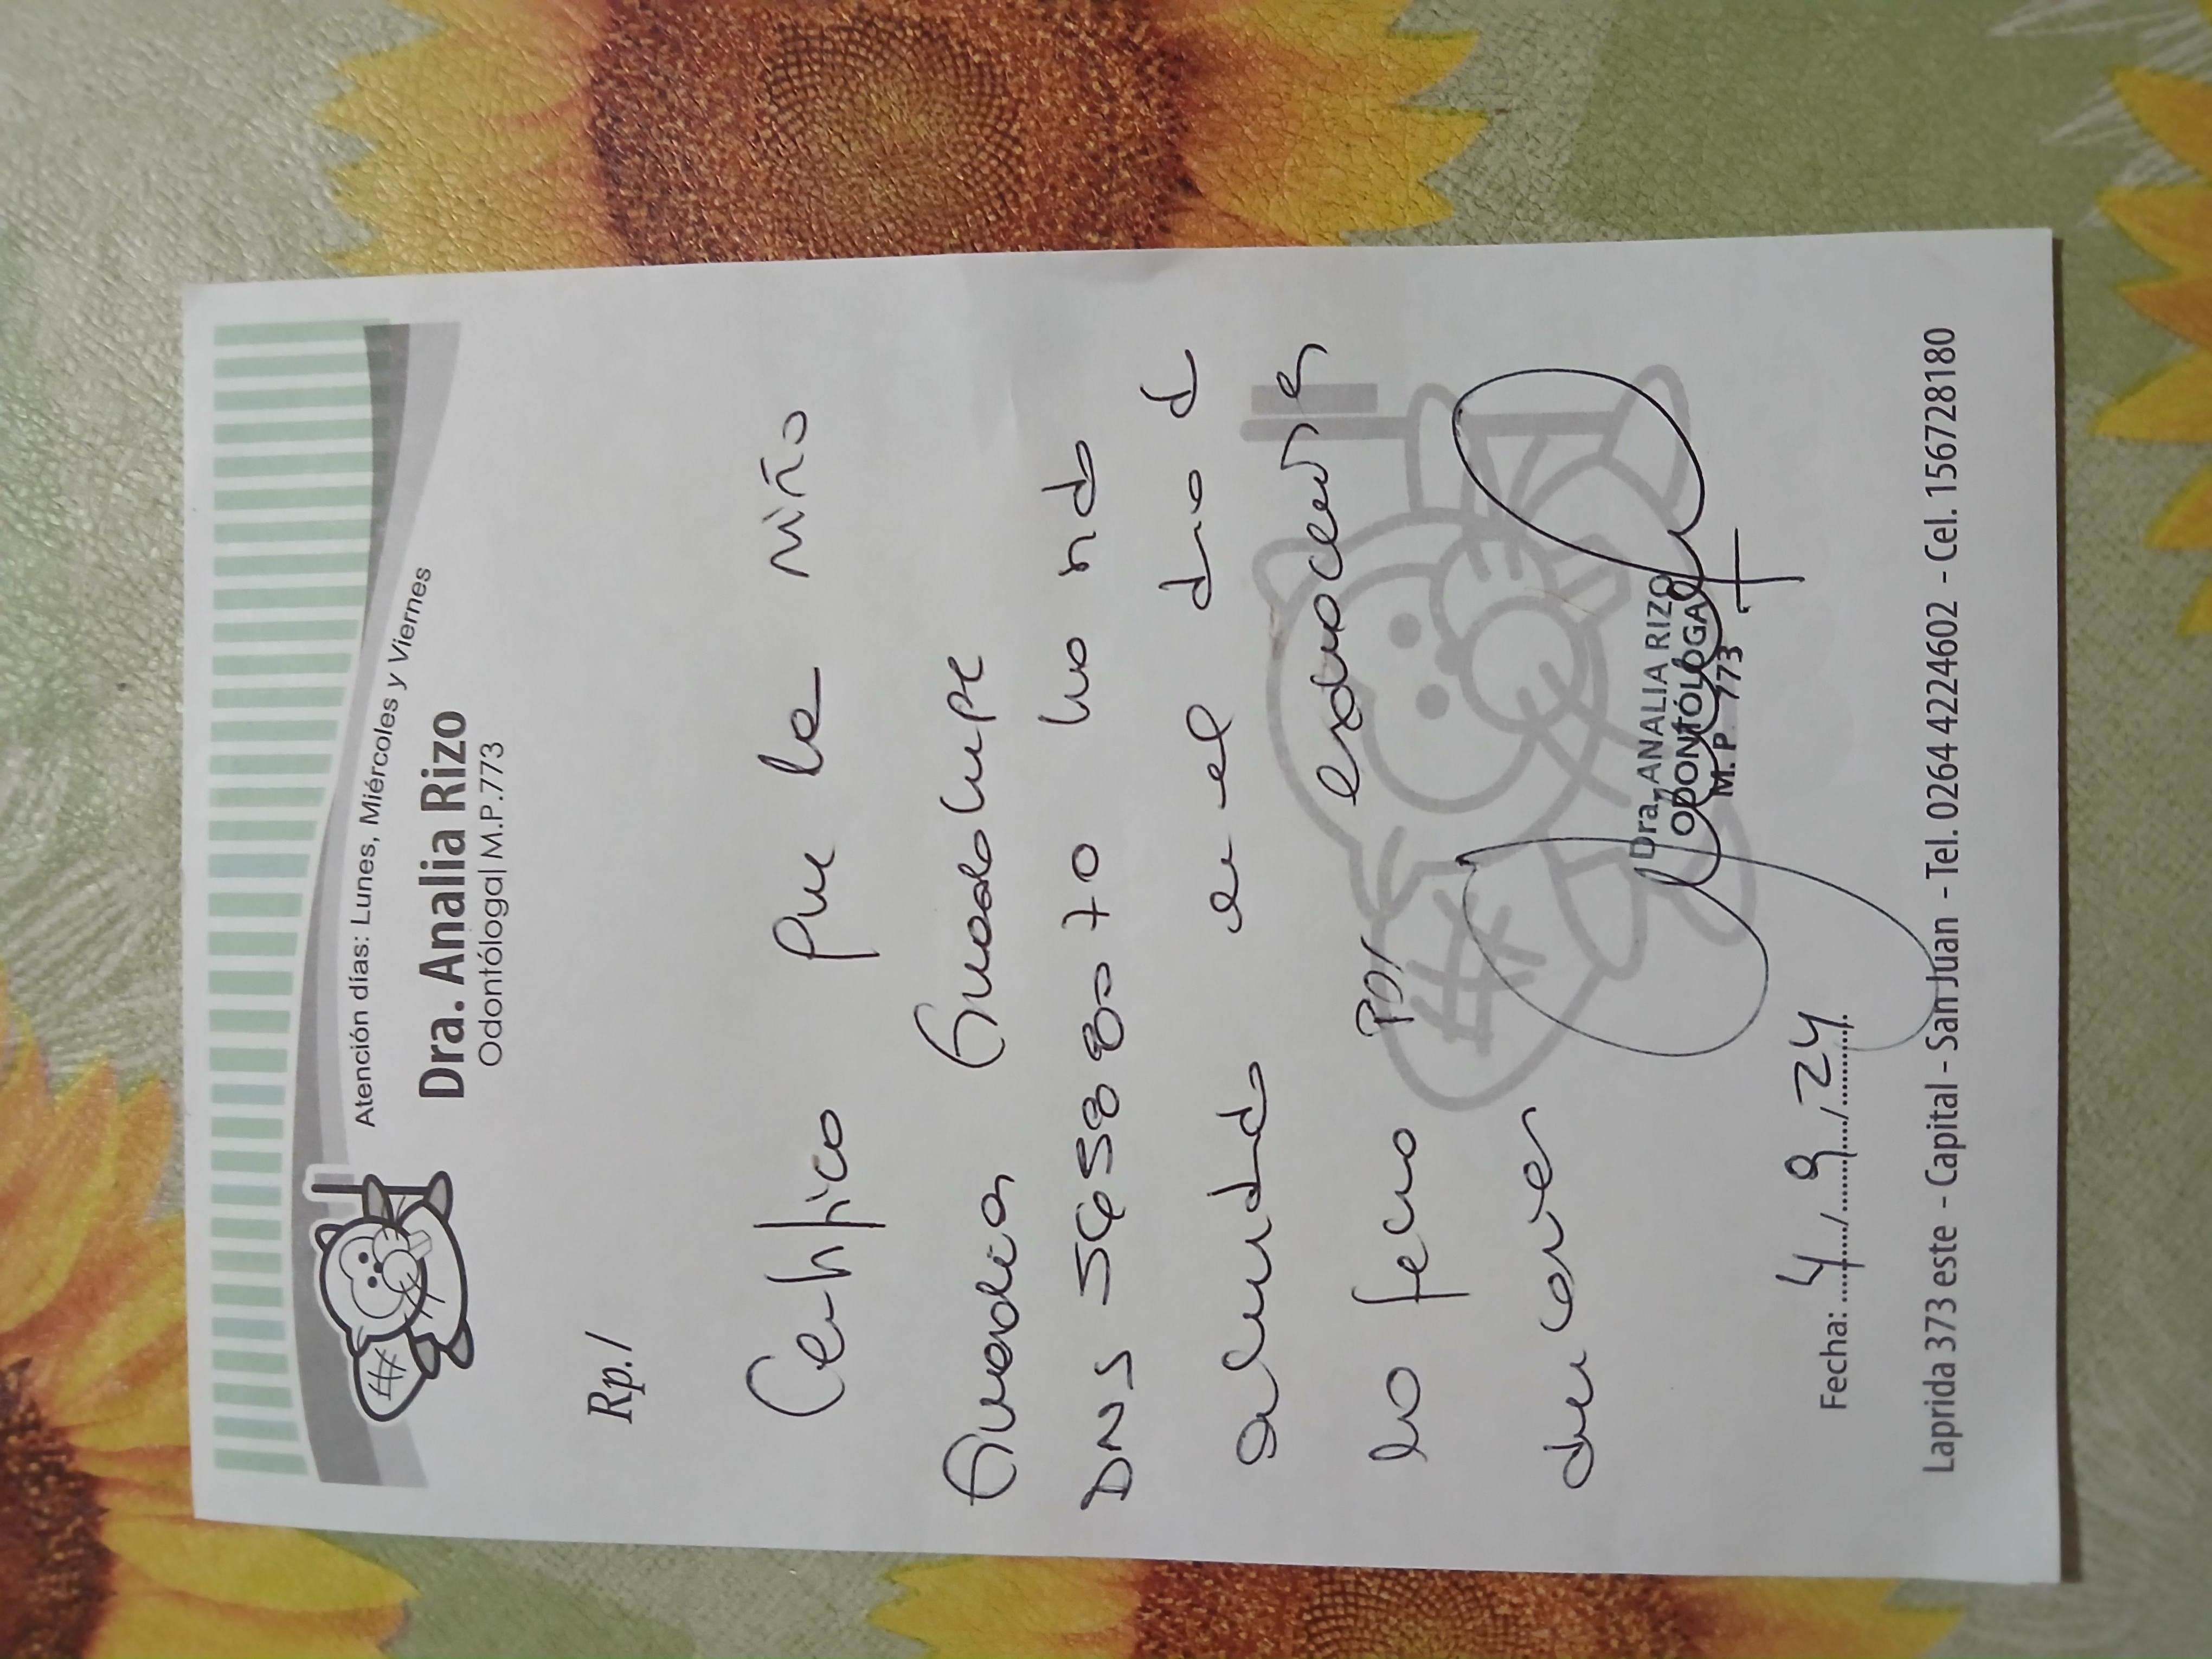 Atención días: Lunes, Miércoles y Viernes
Dra. Analia Rizo
Odontóloga| M.P.773
Rp./
Certifico que la niña
Guadalupe
DNI ha sido
atendida en el día d
la fecha por

Dra. ANALIA RIZO
ODONTÓLOGA
M. P. 773
Fecha: 4/9/24
Laprida 373 este - Capital - San Juan - Tel. 0264 4224602 - Cel. 156728180